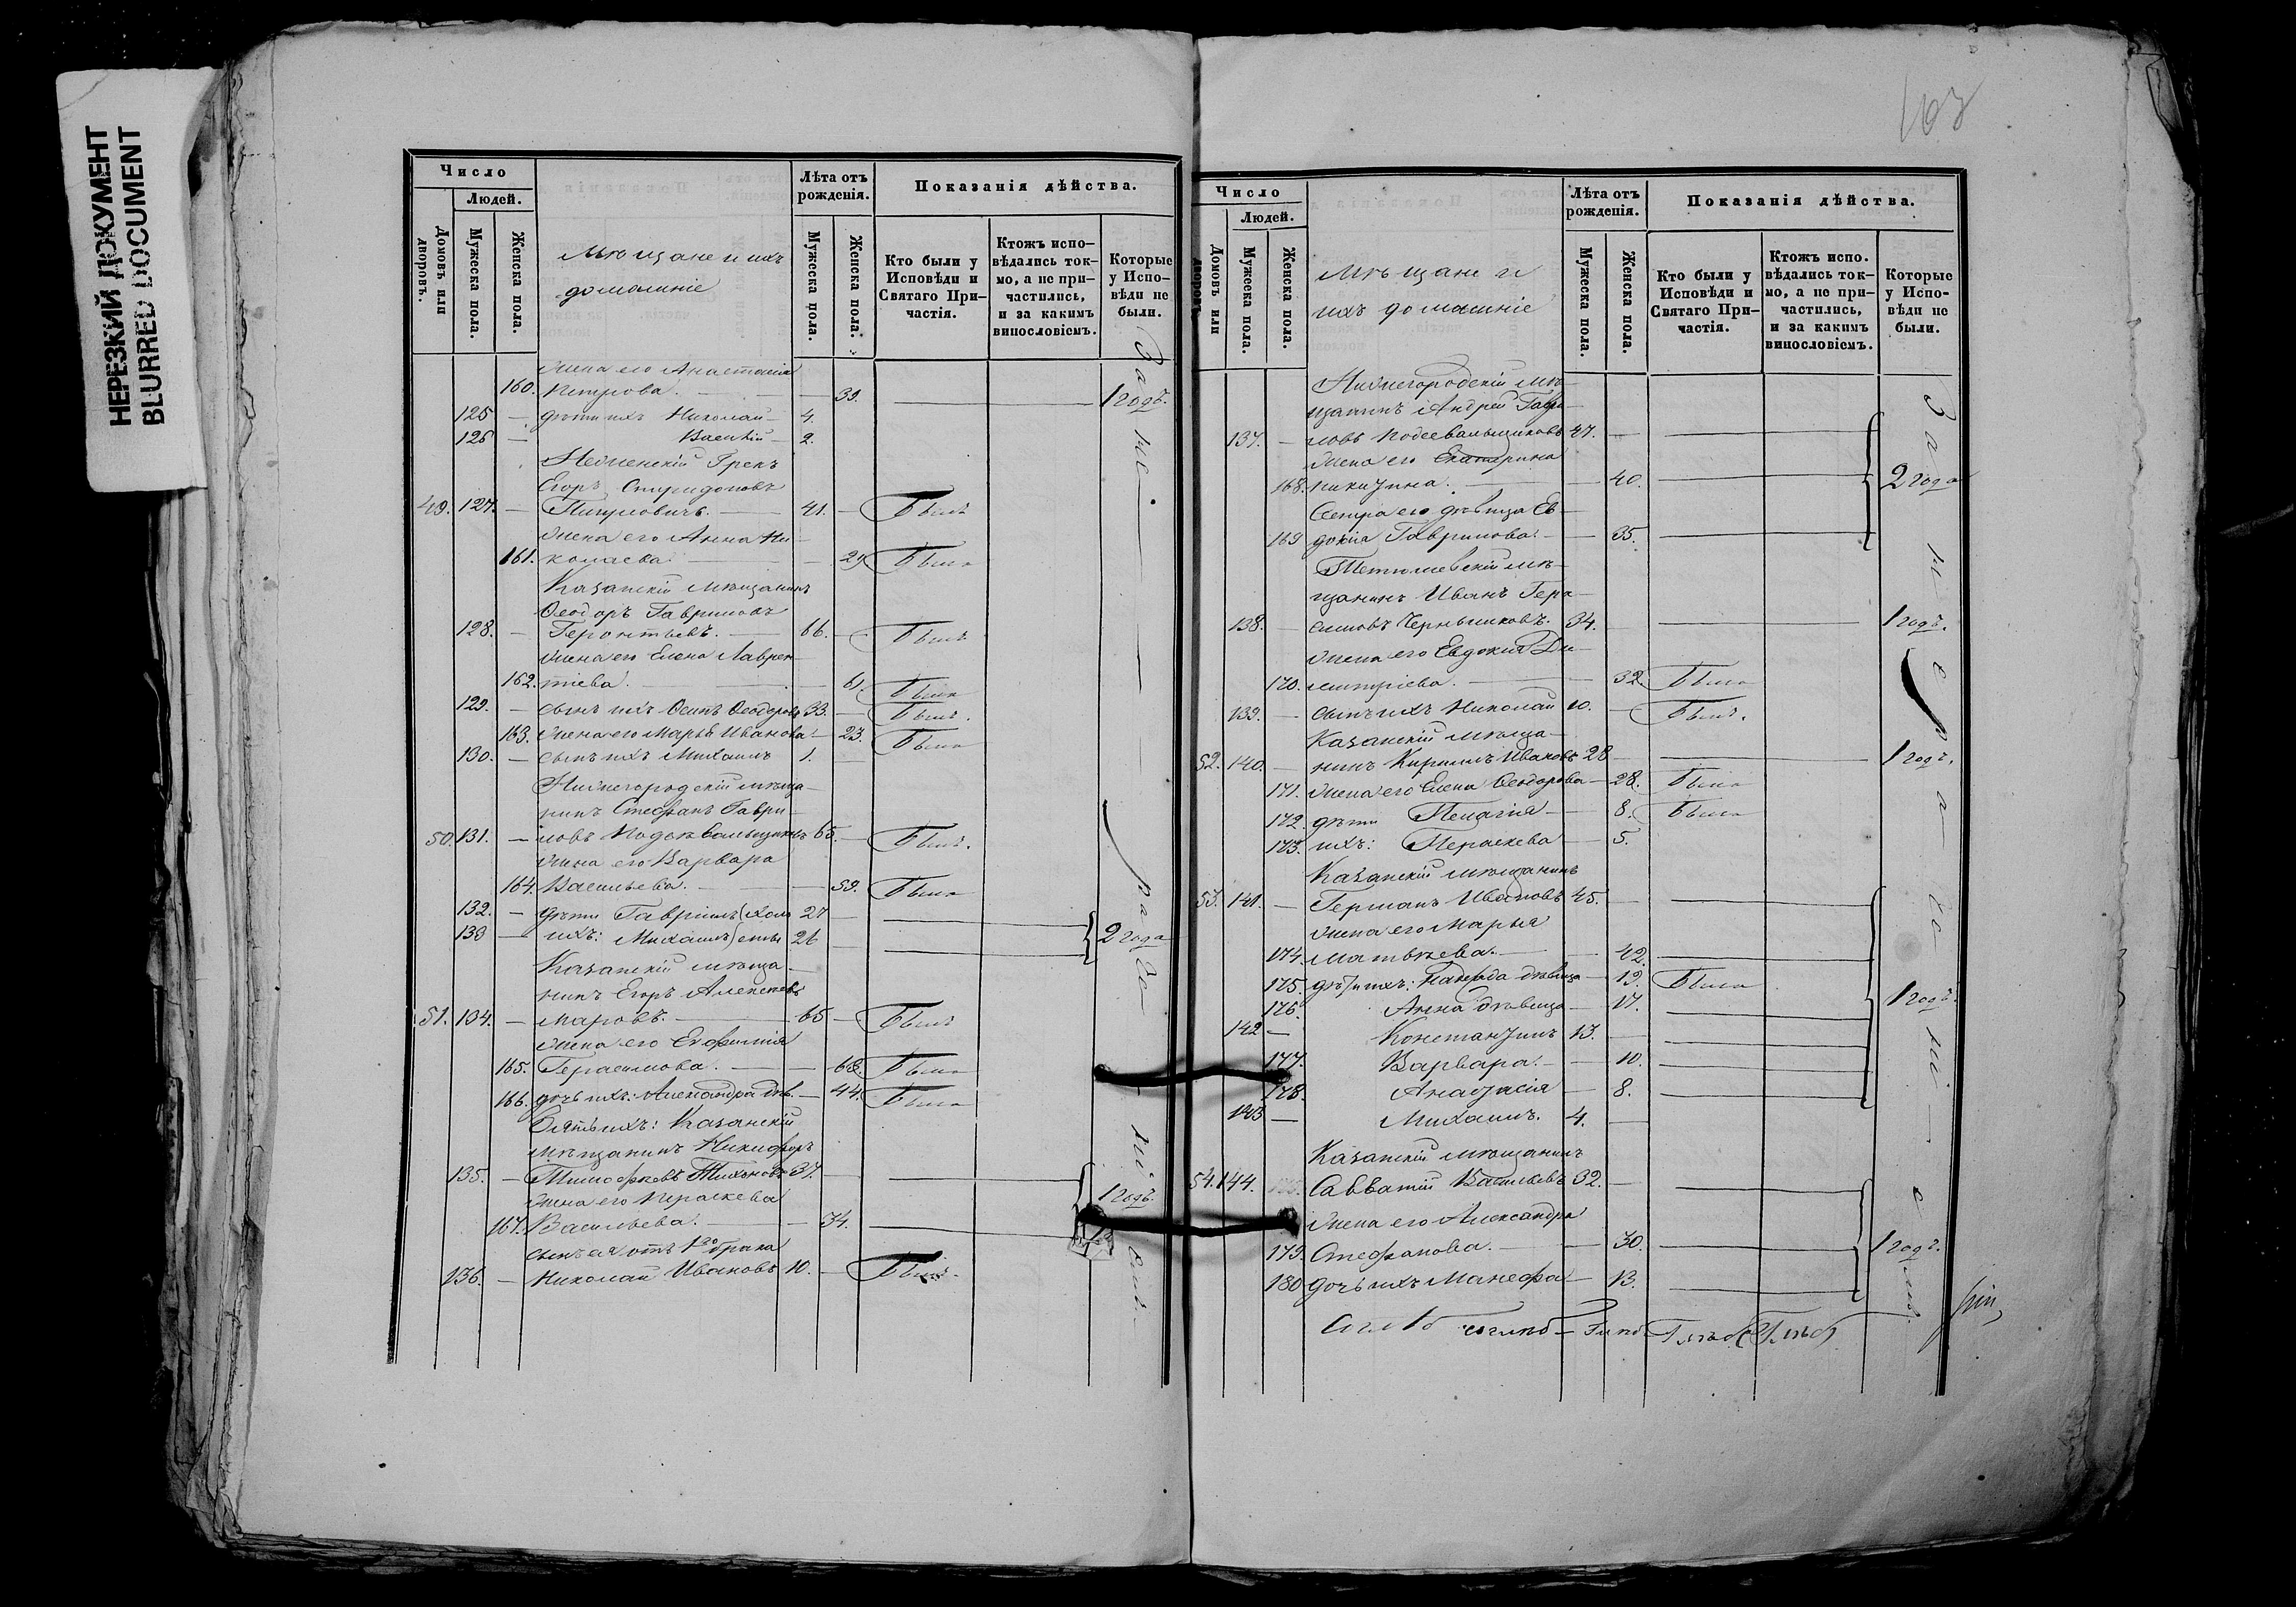 НЕРЕЗКИЙ ДОКУМЕНТ
BLURRED DOCUMENT
Число
Людей.
Домовъ или дворовъ.
Мужеска пола.
Женска пола.
Мѣщане и ихъ
домашніе
Лѣта отъ рожденія.
Мужеска пола.
Женска пола.
Показанія дѣйства.
Кто были у Исповѣди и Святаго При-частія.
Ктожъ испо-вѣдались ток-мо, а не при-частились, и за какимъ винословіемъ.
Которые у Испо-вѣди не были.
жена его Анастасія
160. Петрова. — 39. 1 годъ.
125 — дѣти ихъ Николай — 4.
126 — Василій — 2.
Нѣжинскій Грекъ
Егоръ Спиридоновъ
49. 127. — 41. — Былъ
жена его Анна Ни-
161. колаева — 29 Была
Казанскій мѣщанинъ
Ѳеодоръ Гавриловъ
128. — Геронтьевъ. — 66. — Былъ
жена его Елена Лаврен-
162. тіева. — 61. Была
129. — сынъ ихъ Осипъ Ѳеодоровъ 33. — Былъ.
163. жена его Марья Иванова — 23. Была
130. — сынъ ихъ Михаилъ 1. —
Нижегородскій мѣща-
нинъ Стефанъ Гаври-
50. 131. — ловъ 65. — Былъ.
жена его Варвара
164. Васильева. — 59. Была
132. — дѣти Гавріилъ холо 27 —
133 — ихъ: Михаилъ сты 26 — 2 года
Казанскій мѣща-
нинъ Егоръ Алексѣевъ
51. 134. — Маровъ. — 65 — Былъ
жена его Евфимія
165. Герасимова. — 68. Была
166. дочь ихъ: Александра дѣв. — 44. Была
Зять ихъ: Казанскій
мѣщанинъ Никифоръ
135. — Тимофѣевъ Тихоновъ 37. —
жена его Параскева 1 годъ.
167. Васильева. — 34.
сынъ ея отъ 1го брака
136. — Николай Ивановъ 10. — Былъ.
За не-
ра
ді
емъ.
Число
Людей.
Домовъ или дворовъ.
Мужеска пола.
Женска пола.
Мѣщане и
ихъ домашніе
Лѣта отъ рожденія.
Мужеска пола.
Женска пола.
Показанія дѣйства.
Кто были у Исповѣди и Святаго При-частія.
Ктожъ испо-вѣдались ток-мо, а не при-частились, и за какимъ винословіемъ.
Которые у Испо-вѣди не были.
Нижегородскій мѣ-
щанинъ Андрей Гаври-
137. — ловъ 47. —
жена его Екатерина
168. Никитина. — 40. 2 года
Сестра его дѣвица Ев-
169 докія Гаврилова. — 35.
мѣ-
щанинъ Иванъ Гера-
138. — симовъ Черньшиковъ. 34. — 1 годъ.
жена его Евдокія Ди-
170. митріева. — 32. Была
139. — сынъ ихъ Николай 10. — Былъ.
Казанскій мѣща-
52. 140. — нинъ Кириллъ Ивановъ 28 — 1 годъ.
171. жена его Елена Ѳеодорова — 28. Была
172. дѣти Пелагія — 8. Была
173. ихъ: Параскева — 5.
Казанскій мѣщанинъ
53. 141. — Германъ Ивановъ 45. —
жена его Марья
174. Матвѣева. — 42.
175. дѣти ихъ: Надежда дѣвица — 19. Была
176. Анна дѣвица — 17. 1 годъ.
142 — Константинъ 13. —
177. Варвара. — 10.
178. Анастасія — 8.
143 — Михаилъ. 4. —
Казанскій мѣщанинъ
54. 144. Савватій Васильевъ 32. —
жена его Александра
179. Стефанова. — 30. 1 годъ.
180 дочь ихъ Манефа — 13.
За
не
ра